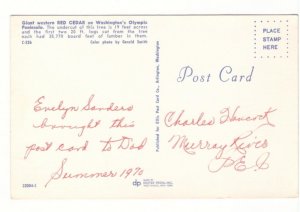 Giant western RED CEDAR on Washington's Olympic
Peninsula. The undercut of this tree is 19 feet across
and the first two 20 ft. logs cut from the tree
each had 35,779 board feet of lumber in them.
C-226 Color photo by Gerald Smith
PLACE
STAMP
HERE
Post Card
Evelyn Sanders
brought this
post card to Dad
Summer 1970
Published for Ellis Post Card Co., Arlington, Washington
Charles Hancock
Murray River
P.E.I
dp